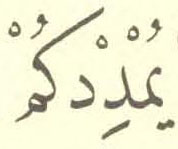 يُمْدِدْكُمْ